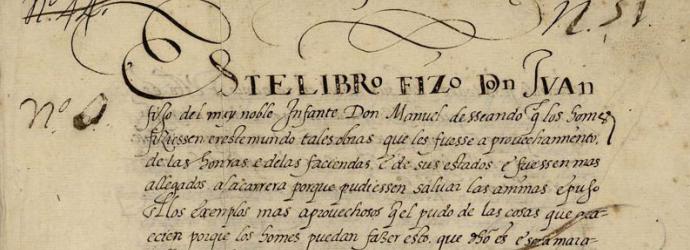 Nº. 44. N. 51
ESTE LIBRO FIZO Don IVAn
Nº
fijo del muy noble Infante Don Manuel desseando q̃ los homes
fiziessen en este mundo tales obras que les fuesse aprouechamiento,
de las honras, e de las faciendas, e de sus estados e fuessen mas
allegados a la carrera porque pudiessen saluar las animas e puso
en los exemplos mas aprouechosos q̃ el pudo de las cosas que aca=
ecien porque los homes puedan fazer esto, que dho es e sera mara=